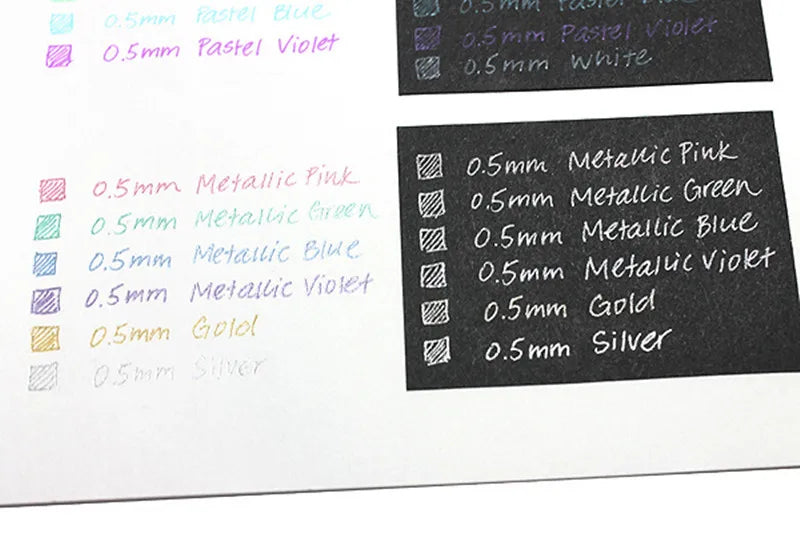 0.5mm Pastel Blue
0.5mm Pastel Violet
0.5mm Pastel Blue
0.5mm Pastel Violet
0.5mm White
0.5mm Metallic Pink
0.5mm Metallic Green
0.5mm Metallic Blue
0.5mm Metallic Violet
0.5mm Gold
0.5mm Silver
0.5mm Metallic Pink
0.5mm Metallic Green
0.5mm Metallic Blue
0.5mm Metallic Violet
0.5mm Gold
0.5mm Silver